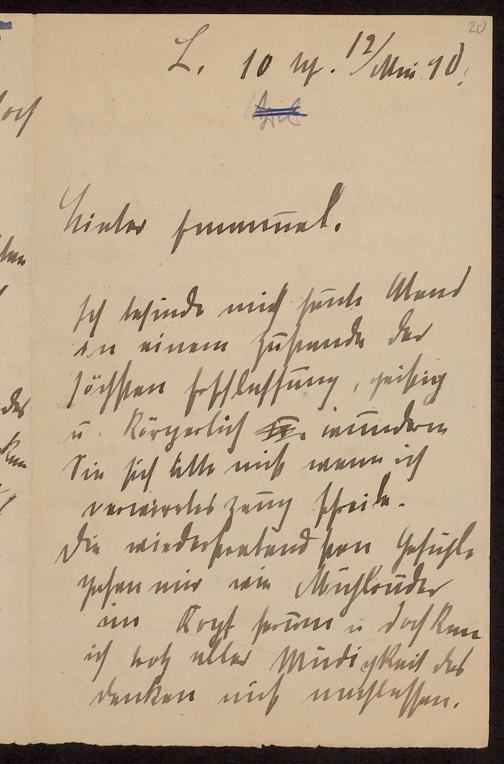 20
L. 10 M. 12/Mai 90.
Lieber Emanuel.
Ich befinde mich heute Abend
in einem Zustande der
höchsten Erschlaffung, geistig
u. körperlich wundern
Sie sich bitte nicht wenn ich
verwirrtes Zeug schreibe.
Die widerstreitendsten Gefühle
gehen mir wie Mühlräder
im Kopf herum u doch kann
ich trotz aller Müdigkeit das
denken nicht unterlassen.
das